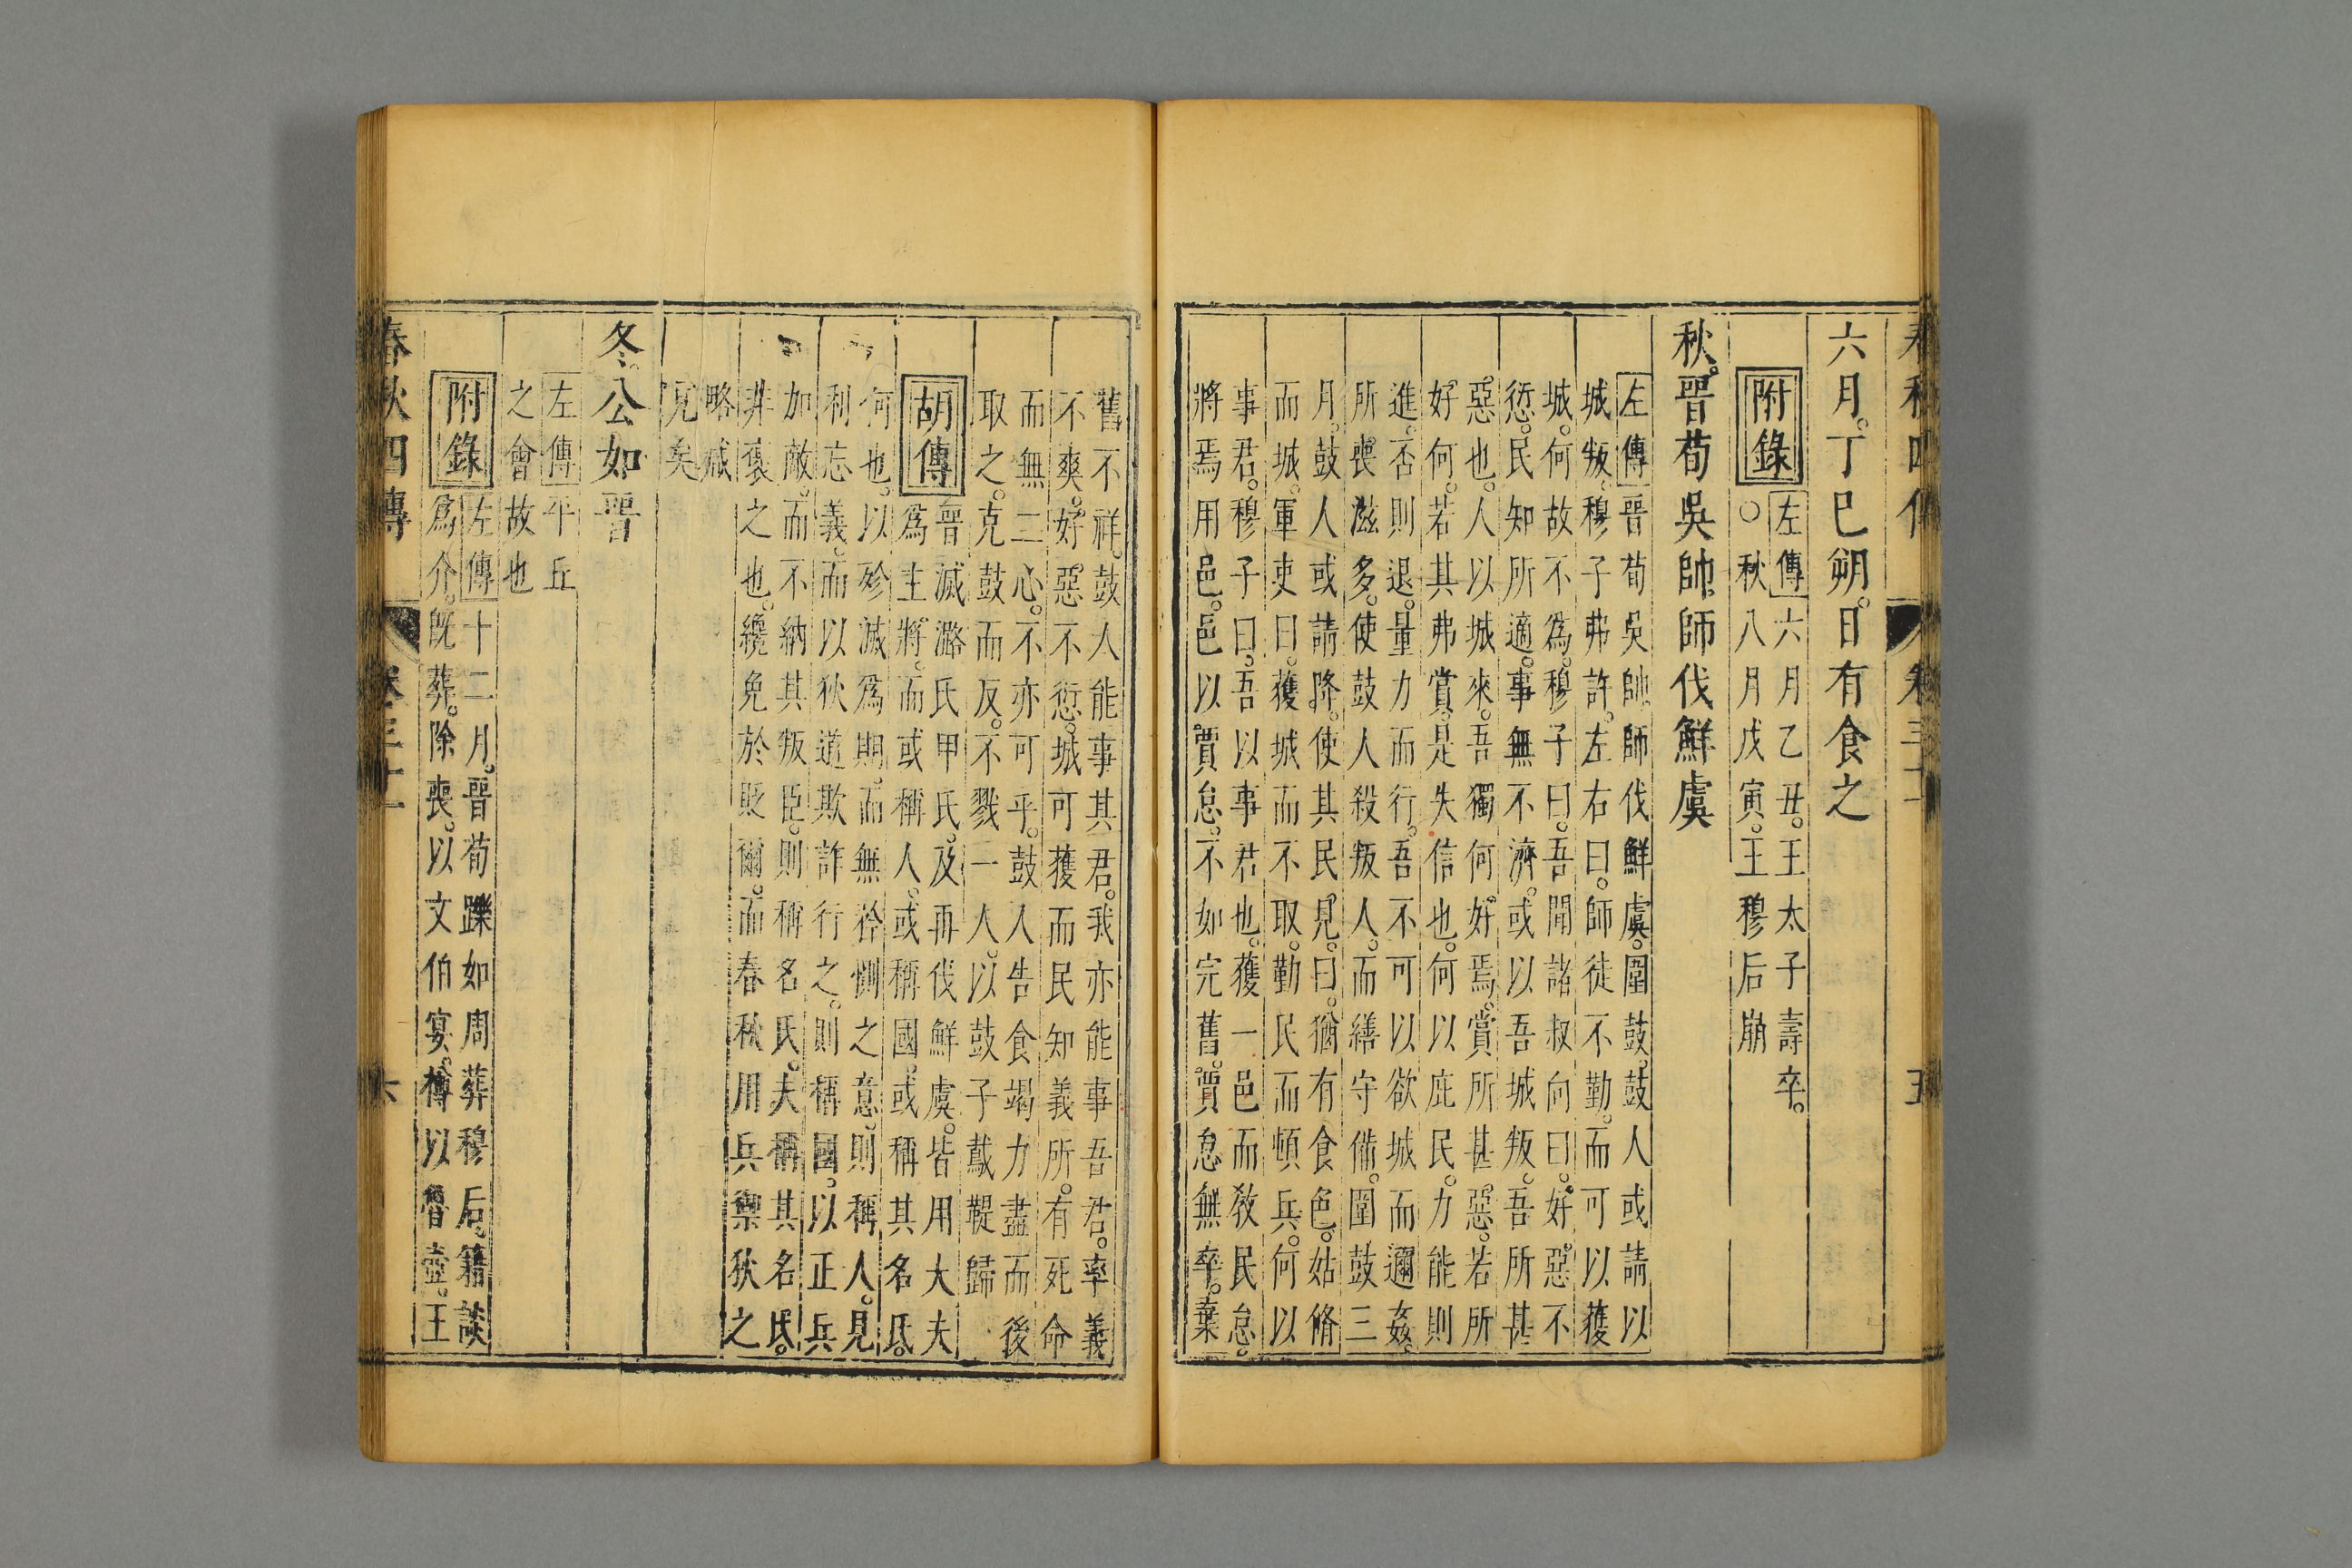 春秋四傳 卷三十 五
六月。丁巳朔。日有食之
附錄 左傳 六月乙丑。王太子壽卒。
○秋八月戊寅。王穆后崩
秋。晉荀吳帥師伐鮮虞
左傳 晉荀吳帥師伐鮮虞。圍鼓。鼓人或請以
城叛。穆子弗許。左右曰。師徒不勤。而可以獲
城。何故不爲。穆子曰。吾聞諸叔向曰。好惡不
愆。民知所適。事無不濟。或以吾城叛。吾所甚
惡也。人以城來。吾獨何好焉。賞所甚惡。若所
好何。若其弗賞。是失信也。何以庇民。力能則
進。否則退。量力而行。吾不可以欲城而邇姦。
所喪滋多。使鼓人殺叛人。而繕守備。圍鼓三
月。鼓人或請降。使其民見。曰。猶有食色。姑脩
而城。軍吏曰。獲城而不取。勤民而頓兵。何以
事君。穆子曰。吾以事君也。獲一邑而敎民怠。
將焉用邑。邑以賈怠。不如完舊。賈怠無卒。棄
舊不祥。鼓人能事其君。我亦能事吾君。率義
不爽。好惡不愆。城可獲而民知義所。有死命
而無二心。不亦可乎。鼓人告食竭力盡而後
取之。克鼓而反。不戮一人。以鼓子䳒鞮歸
胡傳 晉滅潞氏甲氏。及再伐鮮虞。皆用大夫
爲主將。而或稱人。或稱國。或稱其名氏。
何也。以殄滅爲期。而無矜惻之意。則稱人。見
利忘義。而以狄道欺詐行之。則稱國。以正兵
加敵。而不納其叛臣。則稱名氏。夫稱其名氏。
非褒之也。纔免於貶爾。而春秋用兵禦狄之
略咸
見矣
冬。公如晉
左傳 平丘
之會故也
附錄 左傳 十二月。晉荀躒如周葬穆后。籍談
爲介。旣葬。除喪。以文伯宴。樽以魯壺。王
春秋四傳 卷三十 六